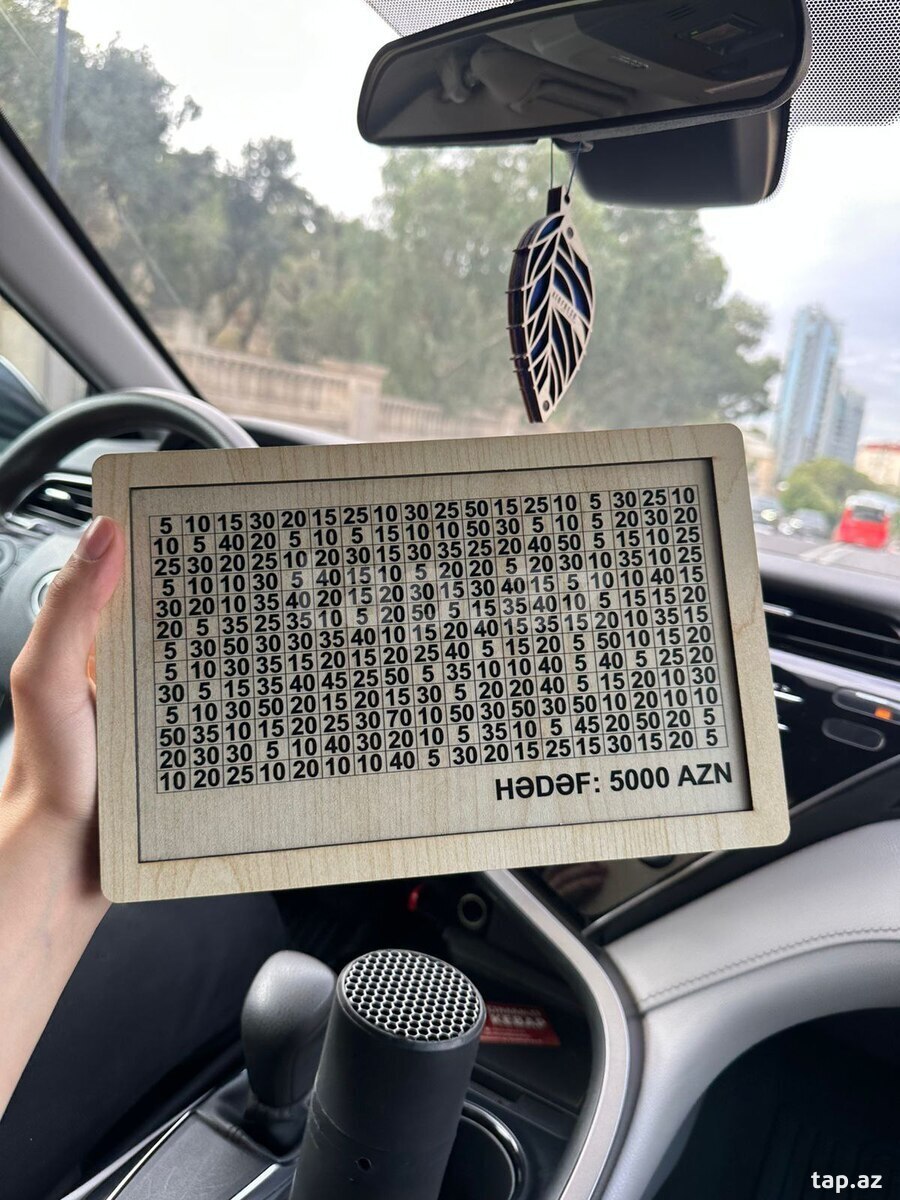 5 10 15 30 20 15 25 10 30 25 50 15 25 10 5 30 25 10
10 5 40 20 5 10 5 15 10 10 50 30 5 10 5 20 30 20
25 30 20 25 10 20 30 15 30 35 25 20 40 50 5 15 10 25
5 10 10 30 5 40 15 10 5 20 20 5 20 30 10 35 10 25
30 20 10 35 40 20 15 20 30 15 30 40 15 5 10 10 40 15
20 5 35 25 35 10 5 20 50 5 15 35 40 10 5 15 15 20
5 30 50 30 30 35 40 10 15 20 40 15 35 15 20 10 35 15
5 10 30 35 15 20 15 20 25 40 5 15 20 5 50 10 15 20
30 5 15 35 40 45 25 50 5 35 10 10 40 5 40 5 25 20
5 10 30 50 20 15 20 15 30 5 20 20 40 5 15 20 10 30
50 35 10 15 20 25 30 70 10 50 30 50 30 50 10 20 10 10
20 30 30 5 10 40 30 20 10 5 35 10 5 45 20 50 20 5
10 20 25 10 20 10 10 40 5 30 20 15 25 15 30 15 20 5
HƏDƏF: 5000 AZN
tap.az